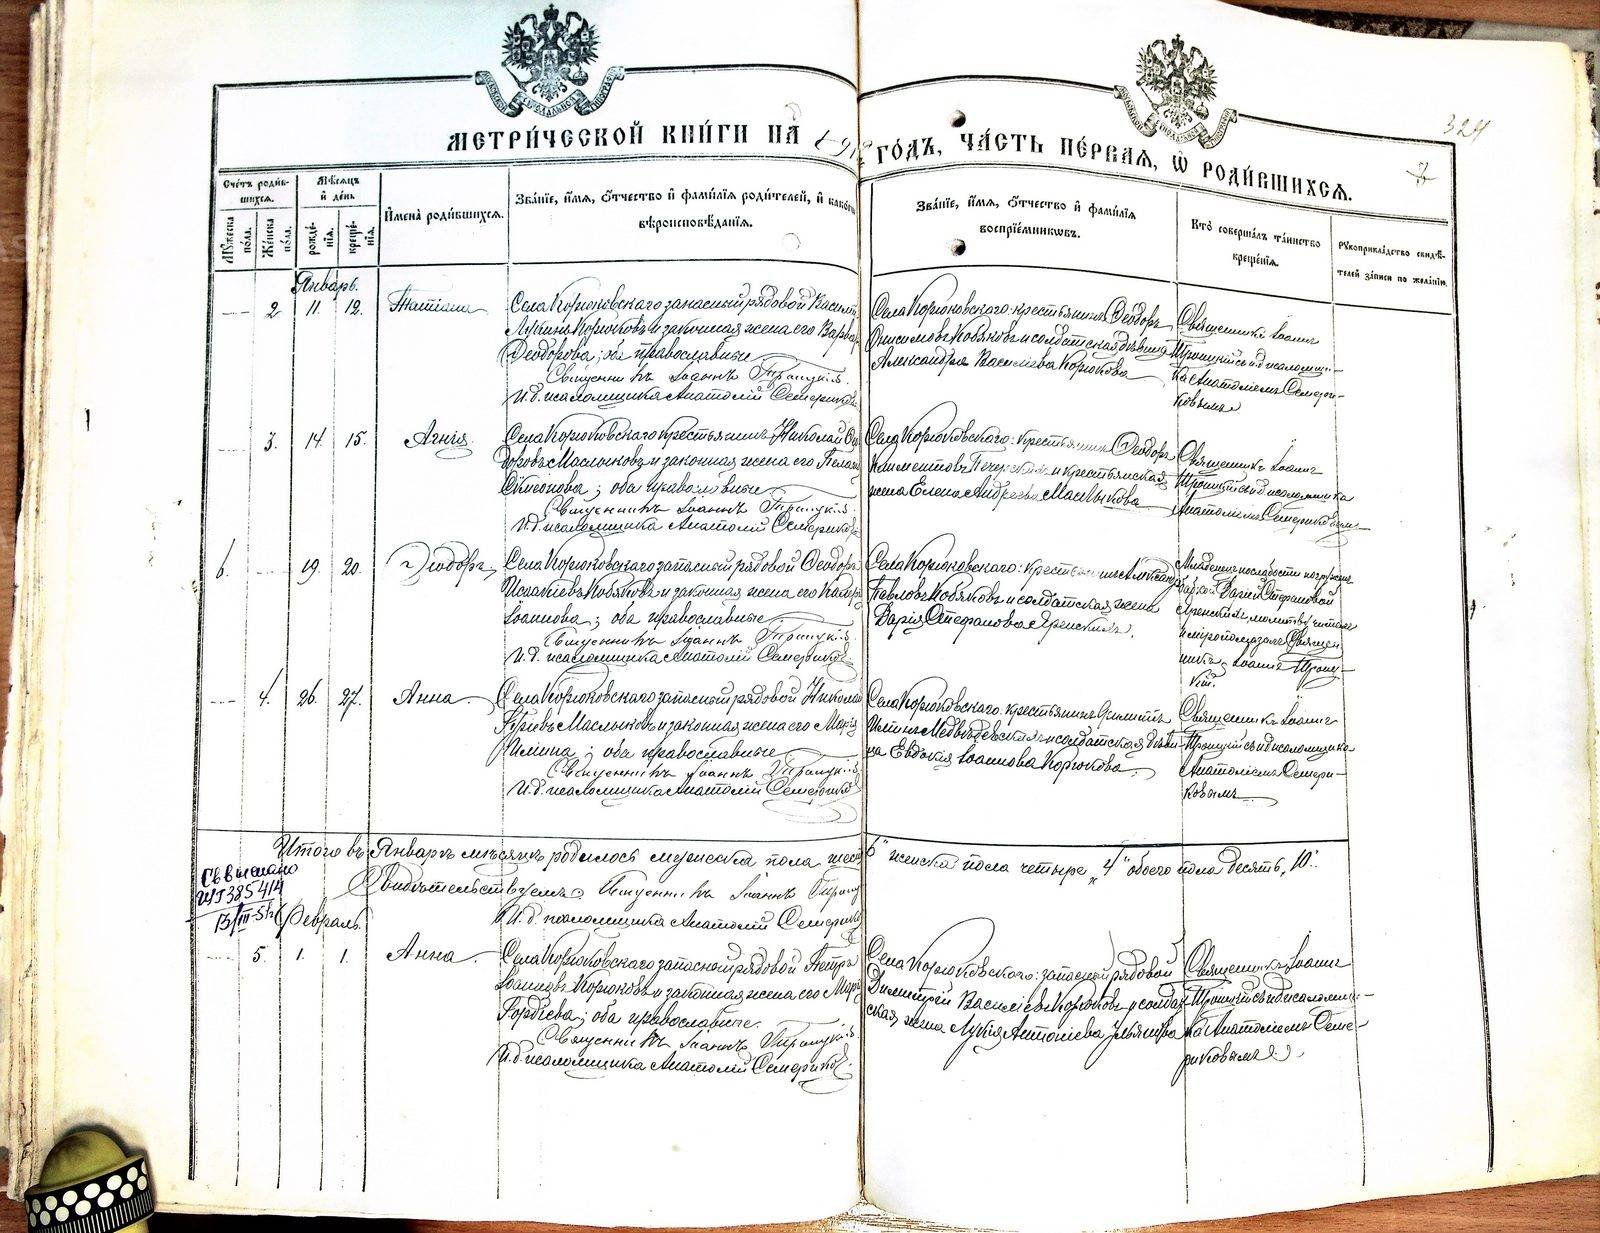 МЕТРИ́ЧЕСКОЙ КНИ́ГИ НА 191 ГО́ДЪ, ЧА́СТЬ ПЕ́РВАЯ, Ѡ РОДИ́ВШИХСЯ.
324
7
Сче́тъ роди́в-
шихся.
Мѣ́сяцъ
и день
Му́жеска
по́ла.
Же́нска
по́ла.
рожде́-
нія.
креще́-
нія.
Имена̀ роди́вшихся.
Зва́ніе, и́мя, о́тчество и фами́лія роди́телей, и како́го
вѣроисповѣ́данія.
Зва́ніе, и́мя, о́тчество и фами́лія
воспріе́мниковъ.
Кто̀ соверша́лъ та́инство
креще́нія.
Рукоприкла́дство свидѣ́-
телей за́писи по жела́нію.
Январь.
2 11. 12. Татіана
Села Корюковскаго запасный рядовой Василій
Корюковъ и законная жена его Варвар
Ѳеодорова; оба православные.
Священникъ Іоаннъ Троицкій.
И.д. псаломщика Анатолій Семериковъ
Села Корюковскаго: крестьянинъ Ѳеодоръ
Анисимовъ Кобяковъ и солдатская дѣвица
Александра Васильева Корюкова
Священникъ Іоаннъ
Троицкій съ и.д. псаломщи-
ка Анатоліемъ Семери-
ковымъ
3. 14. 15. Агнія.
Села Корюковскаго крестьянинъ Николай
доровъ Маслыковъ и законная жена его Пелаг
Сѵмеонова; оба православные
Священникъ Іоаннъ Троицкій.
И.д. псаломщика Анатолій Семериков
Села Корюковскаго: крестьянинъ Ѳеодоръ
Климентовъ и крестьянская
жена Елена Андреева Маслыкова
Священникъ Іоаннъ
Троицкій съ и.д. псаломщика
Анатоліемъ Семериковымъ
6. 19. 20. Ѳеодоръ
Села Корюковскаго запасный рядовой Ѳеодоръ
Кобяковъ и законная жена его
Іоаннова; оба православные
Священникъ Іоаннъ Троицкій.
И.д. псаломщика Анатолій Семериков
Села Корюковскаго: крестьянинъ Александръ
Павловъ Кобяковъ и солдатская жена
Марія Стефанова
Младенца по слабости погружала
Стефановой
молитвы читалъ
и мѵропомазалъ Священ-
никъ Іоаннъ Троиц-
кій.
4. 26. 27. Анна.
Села Корюковскаго запасный рядовой Николай
Маслыковъ и законная жена его Марія
Ильина; оба православные
Священникъ Іоаннъ Троицкій
И.д. псаломщика Анатолій Семериков
Села Корюковскаго: крестьянинъ Филиппъ
и солдатская дѣви-
ца Евдокія Іоаннова Корюкова.
Священникъ Іоаннъ
Троицкій съ и.д. псаломщика
Анатоліемъ Семери-
ковымъ
Итого въ Январѣ мѣсяцѣ родилось мужеска пола шесть „6" женска пола четыре „4" обоего пола десять „10".
Свидѣтельствуемъ: Священникъ Іоаннъ Троиц
И.д. псаломщика Анатолій Семерик
385414
Февраль.
5. 1. 1. Анна
Села Корюковскаго запасный рядовой Петръ
Іоанновъ Корюковъ и законная жена его Марія
Гордѣева; оба православные.
Священникъ Іоаннъ Троицкій.
И.д. псаломщика Анатолій Семериков.
Села Корюковскаго: запасный рядовой
Димитрій Васильевъ Корюковъ и солдат-
ская жена Лукія Антоніева
Священникъ Іоаннъ
Троицкій съ и.д. псаломщи-
ка Анатоліемъ Семе-
риковымъ